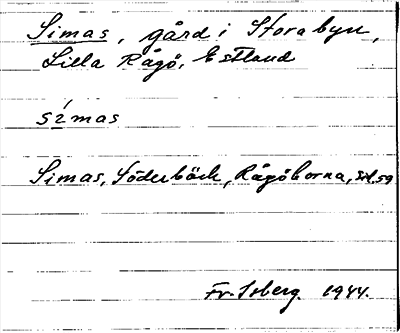 Simas, gård i Storabyn,
Lilla Rågö, Estland
símas
Simas, Söderbäck, Rågöborna, sid. 59
Fr. Isberg. 1944.